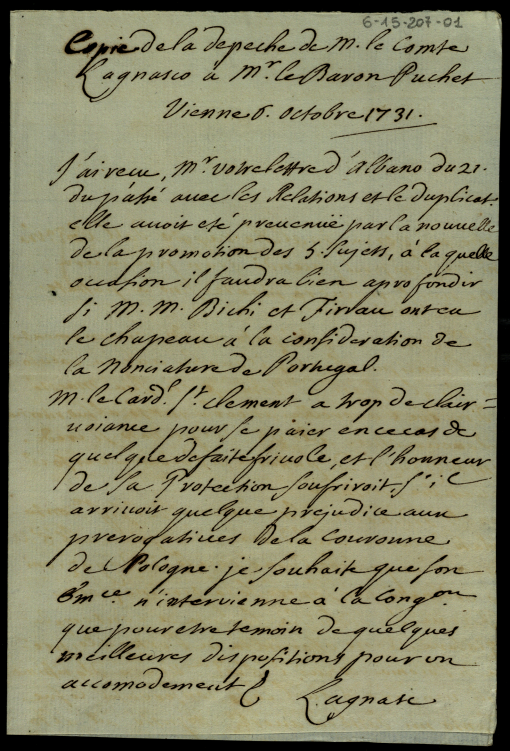 6-15-207-01
Copie de la depeche de M. le Comte
Lagnasco a Mr. le Baron Puchet
Vienne 6. Octobre 1731.
J'ai recu, Mr. votre lettre d'Albano du 21.
du passé avec les Relations et le duplicat.
elle avoit eté prevenuë par la nouvelle
de la promotion des 5. Sujets, á la quelle
occasion il faudra bien aprofondir
si M. M. Bichi et Firrau ont eu
le chapeau á la consideration de
la Nonciature de Portugal.
M. le Card.l St. Clement a trop de clair=
voiance pour se païer en ce cas de
quelque defaite frivole, et l'honneur
de sa Protection soufriroit, s'il
arrivoit quelque prejudice aux
prerogatives de la Couronne
de Pologne. je souhaite que son
Emce. n'intervienne á la Congon.
que pour etre temoin de quelques
meilleures dispositions pour un
accomodement
Lagnasc